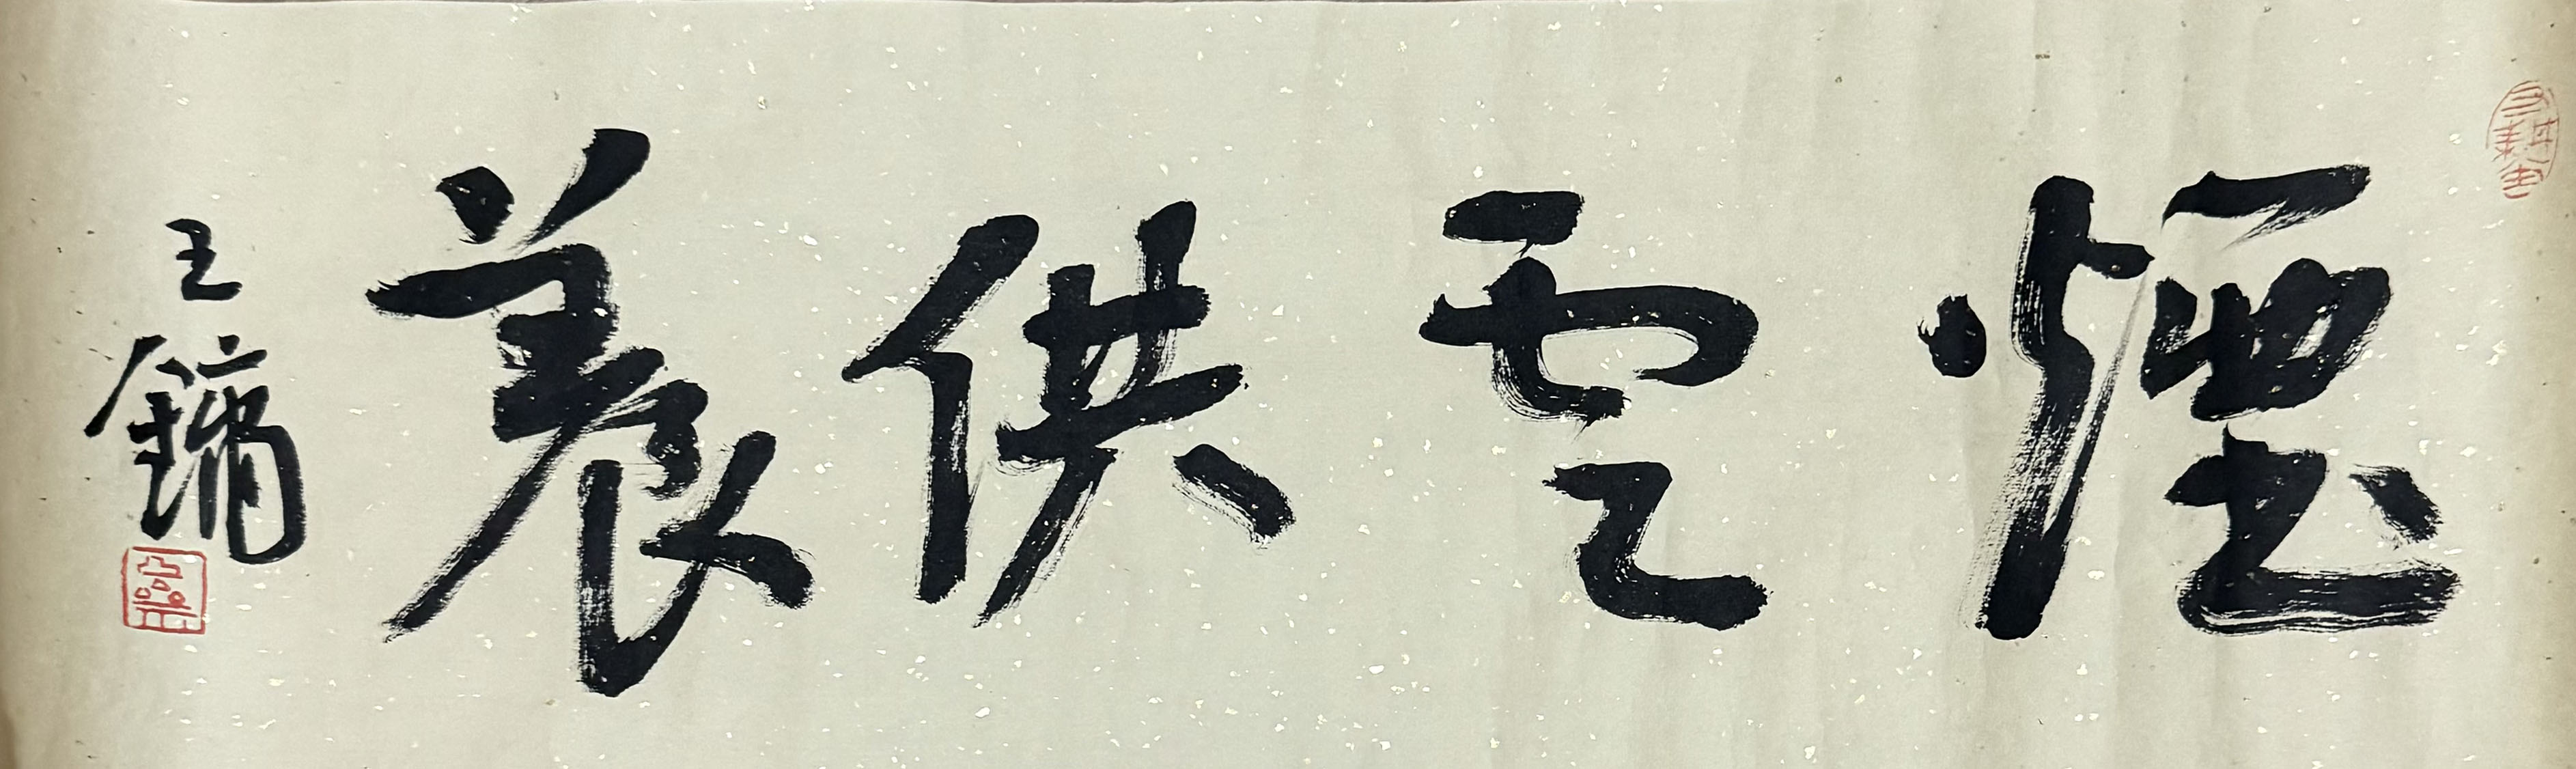 煙雲供養
王鏞